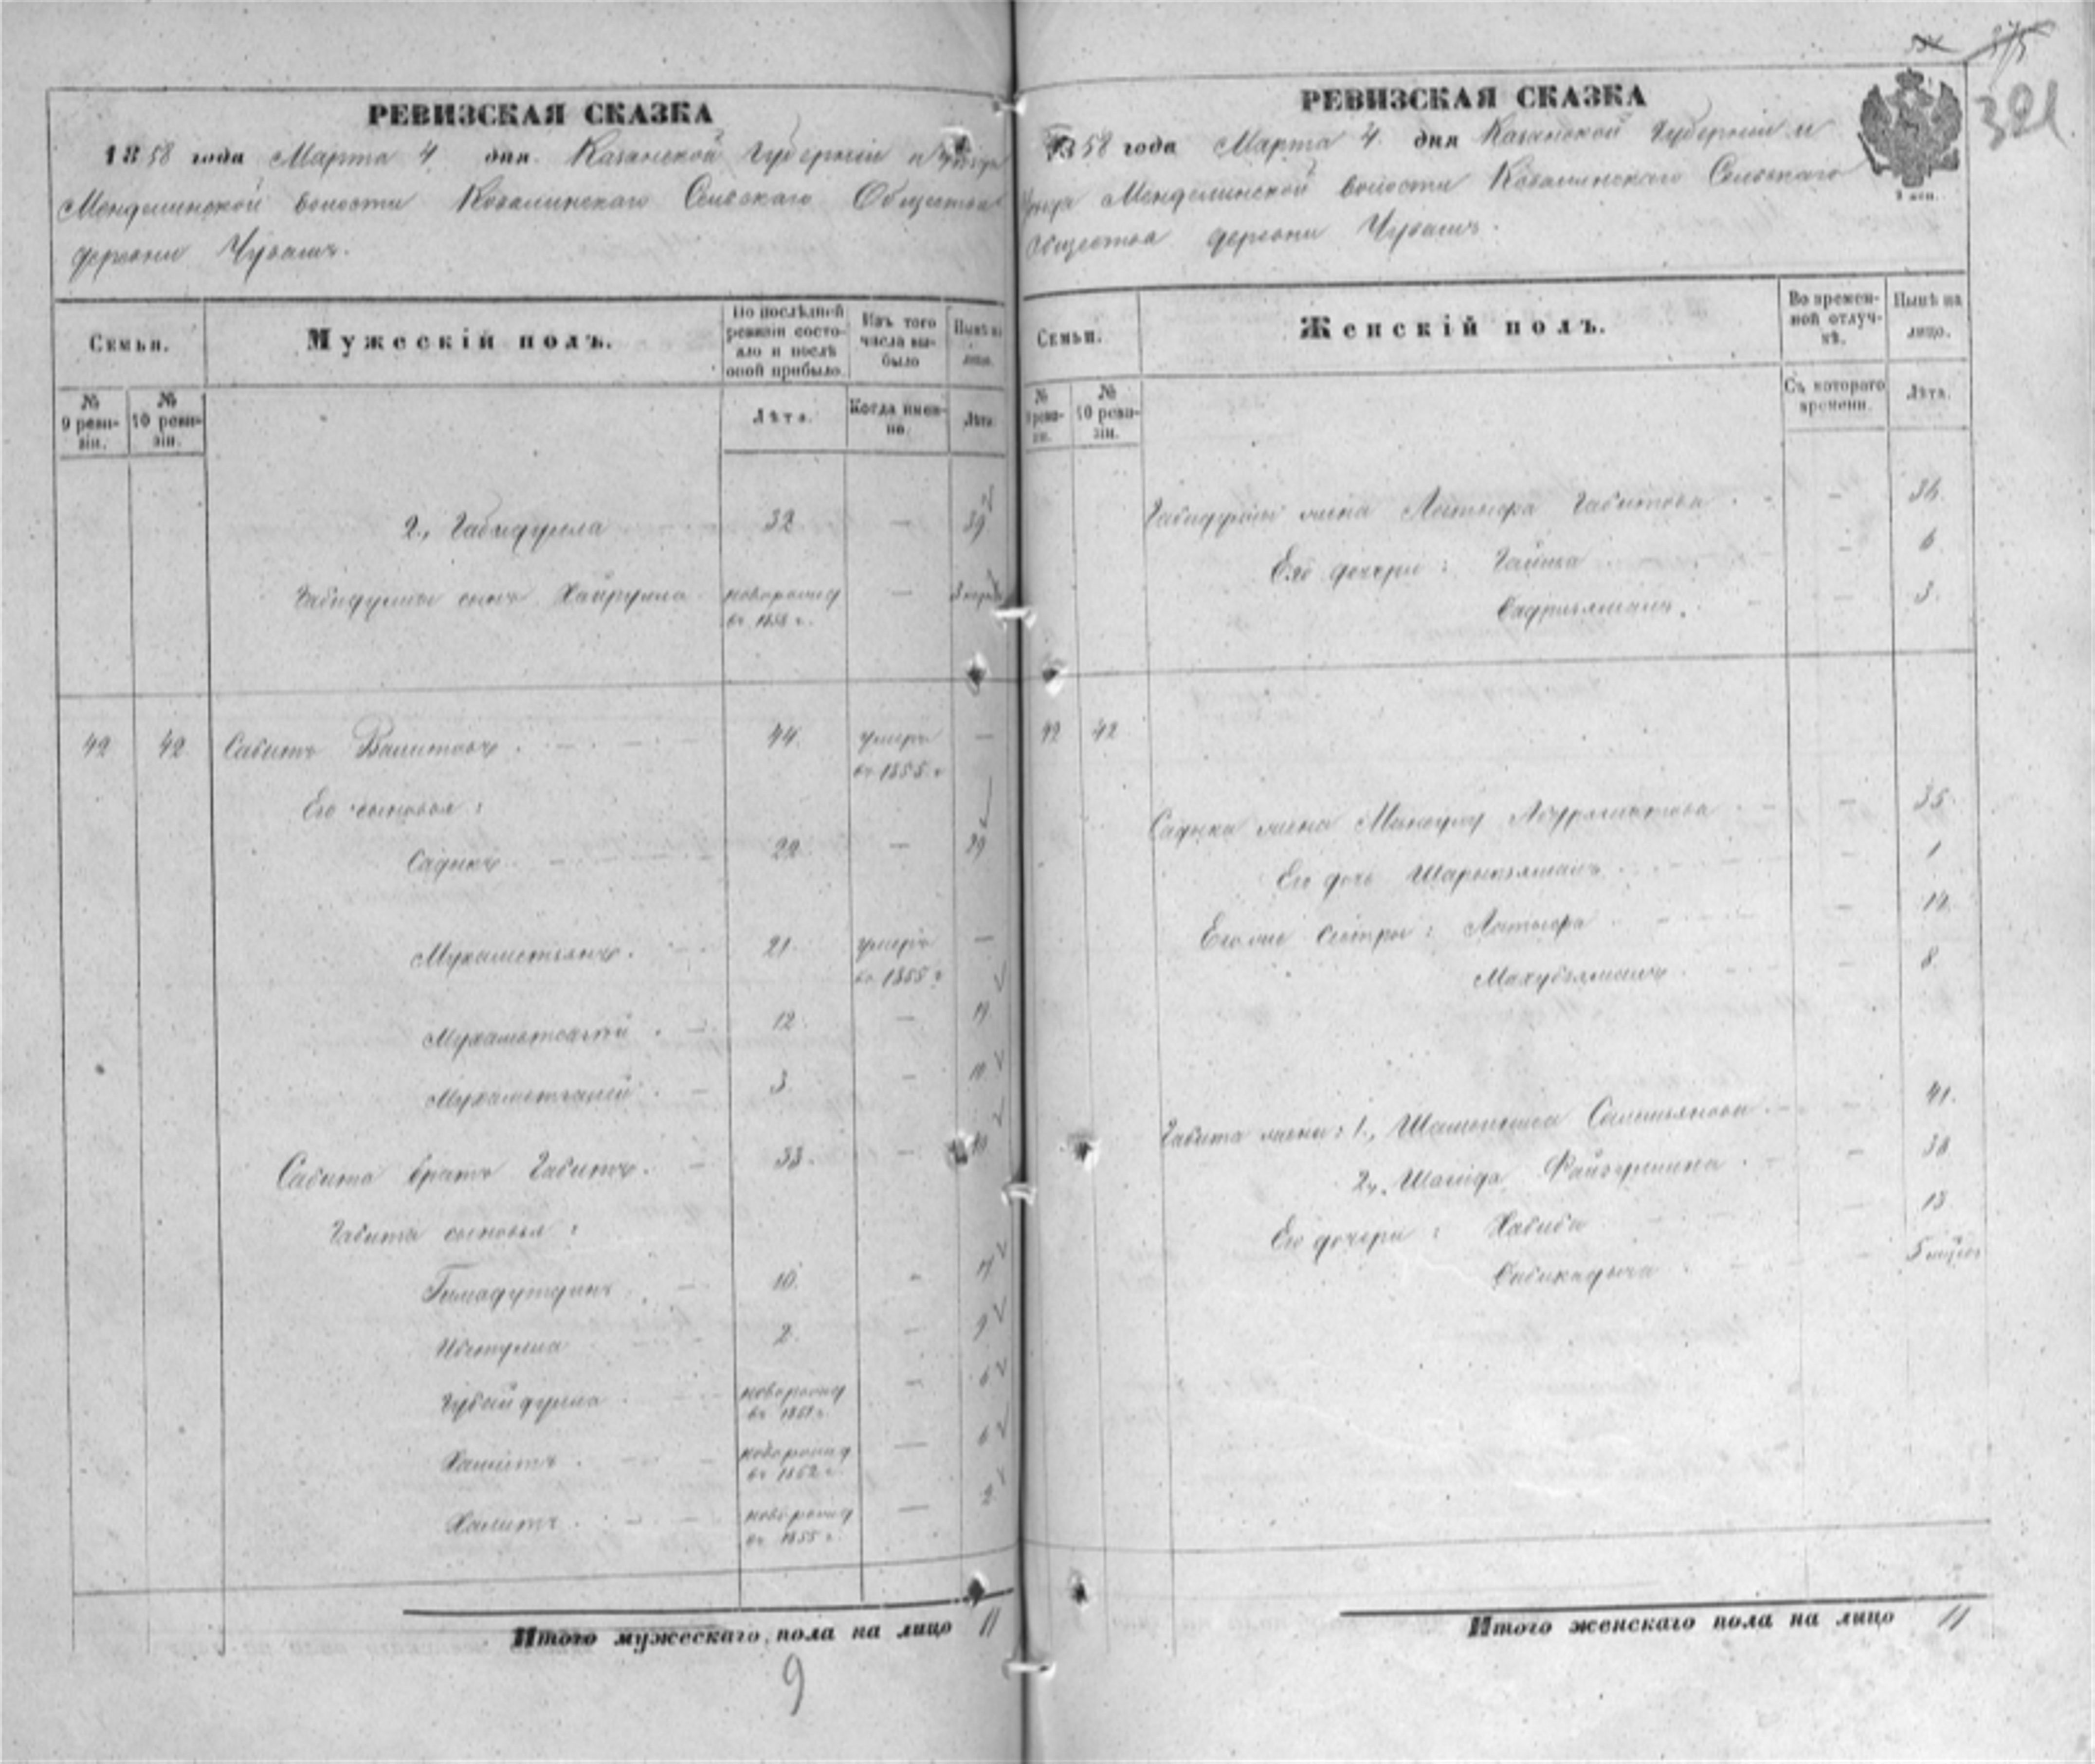 РЕВИЗСКАЯ СКАЗКА
1858 года Марта 4 дня Казанской Губерніи и Уѣзда
Менделинской волости Ковалинскаго Сельскаго Общества
деревни Чувашъ.
Семьи.
Мужескій полъ.
По послѣдней ревизіи состояло и послѣ оной прибыло.
Изъ того числа выбыло
Нынѣ на лицо.
№ 9 ревизіи.
№ 10 ревизіи.
Лѣта.
Когда именно.
Лѣта.
2., Габидулла 32 — 39
Габидуллы сынъ Хайрулла новорожд —
въ 1858 г.
42 42 Сабитъ Валитовъ 44. умеръ —
въ 1855 г
Его сыновья:
Садыкъ 22 — 29
Мухаметьянъ. 21. умеръ —
въ 1855 г
Мухаметсагитъ 12. — 19
Мухаметганей 3. — 10
Сабита братъ Габитъ. 33. —
Габита сыновья:
Гимадутдинъ 10. - 17
2. — 9
Губайдулла новорожд — 6
въ 1851 г.
Хамитъ новорожд — 6
въ 1852 г.
Халитъ новорожд — 2
въ 1855 г.
Итого мужескаго пола на лицо 11
9
375
321
РЕВИЗСКАЯ СКАЗКА
1858 года Марта 4. дня Казанской Губерніи и
Уѣзда Менделинской волости Ковалинскаго Сельскаго
Общества деревни Чувашъ.
Семьи.
Женскій полъ.
Во временной отлучкѣ.
Нынѣ на лицо.
№ 9 ревизіи.
№ 10 ревизіи.
Съ котораго времени.
Лѣта.
Габидуллы жена Латыфа Габитова — 36.
Его дочери: Гайша — 6
— 3.
42 42
Садыка жена — 35.
Его дочь — 1
Его же сестры: Латыфа — 12
Махубзямалъ — 8.
Габита жены: 1., — 41.
2., Шагида Файзуллина — 36
Его дочери: Хабиба — 13
Бибикадыча — 5 мѣсяц
Итого женскаго пола на лицо 11